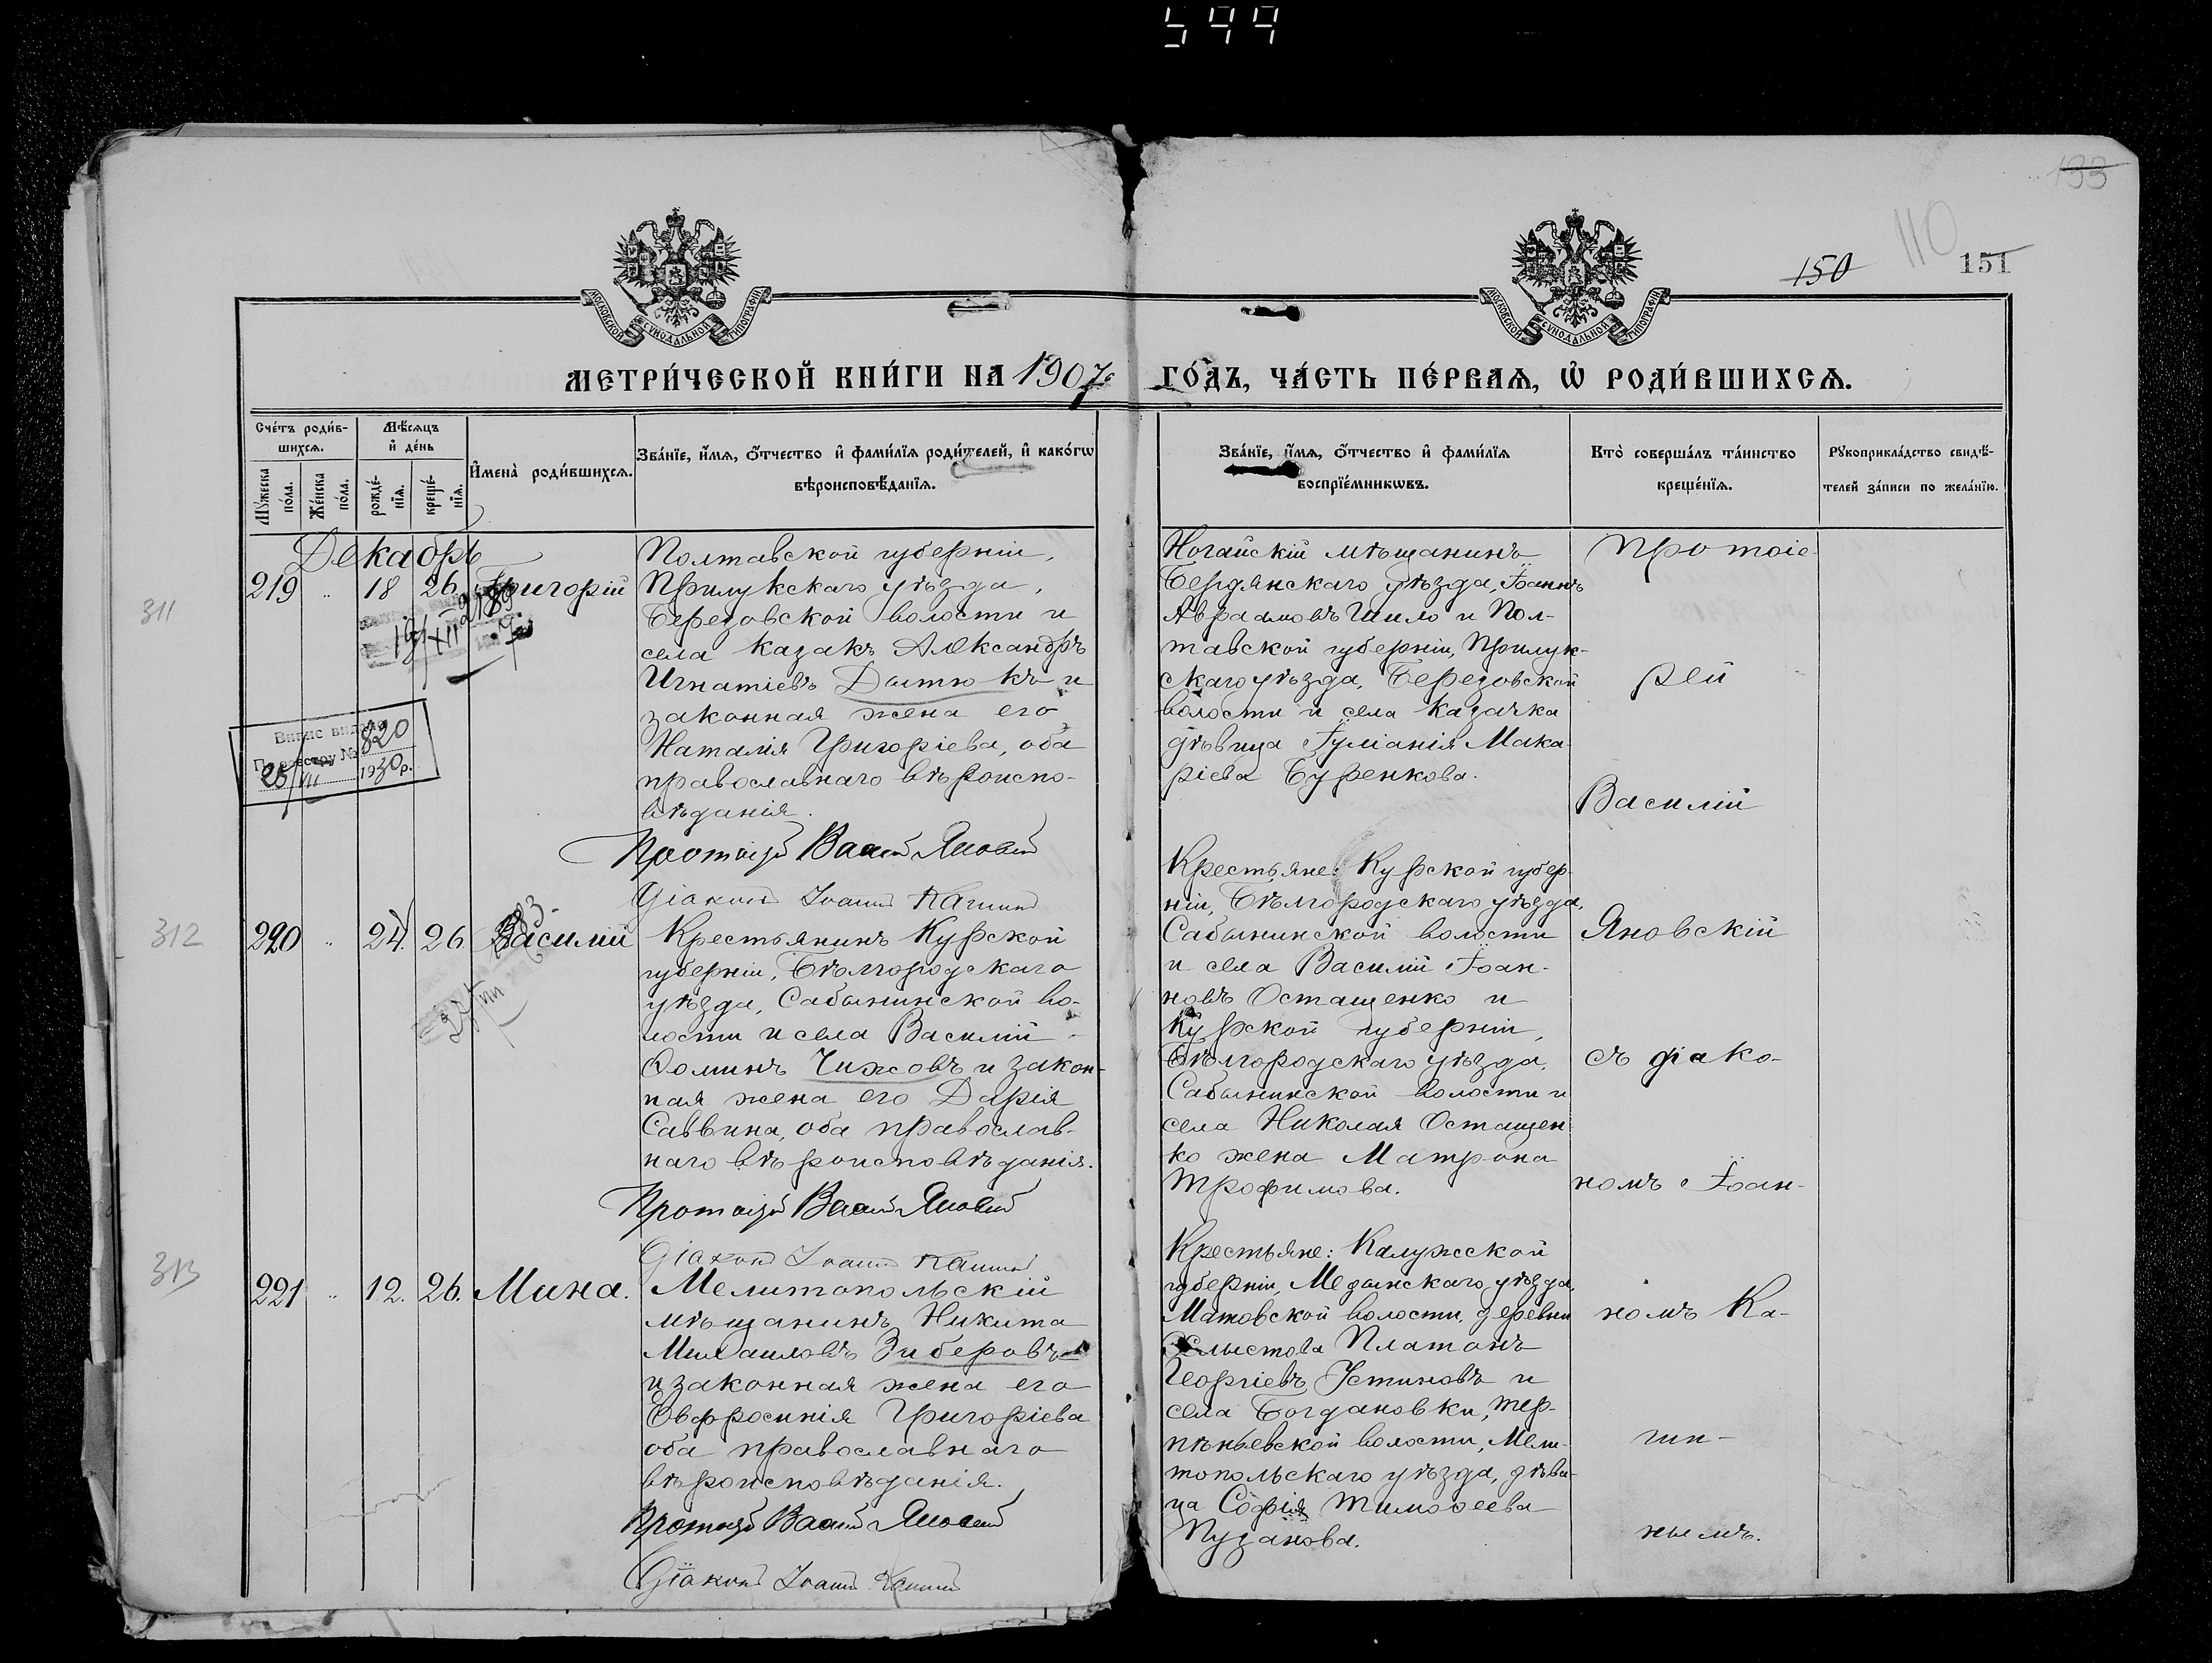 599
133
110
150
151
МОСКОВСКОЙ СУНОДАЛЬНОЙ ТИПОГРАФІИ
МОСКОВСКОЙ СУНОДАЛЬНОЙ ТИПОГРАФІИ
МЕТРИ́ЧЕСКОЙ КНИ́ГИ НА 1907
ГО́ДЪ, ЧА́СТЬ ПЕ́РВАѦ, Ѡ҆ РОДИ́ВШИХСѦ.
Сче́тъ роди́в-
шихсѧ.
Мꙋ́жеска
по́ла.
Же́нска
по́ла.
Мѣ́сѧцъ
и҆ де́нь
рожде́-
нїѧ.
креще́-
нїѧ.
И҆мена̀ роди́вшихсѧ.
Зва́нїе, и҆́мѧ, ѻ҆́тчество и҆ фами́лїѧ роди́телей, и҆ како́гѡ
вѣроисповѣ́данїѧ.
Зва́нїе, и҆́мѧ, ѻ҆́тчество и҆ фами́лїѧ
воспрїе́мникѡвъ.
Кто̀ соверша́лъ та́инство
креще́нїѧ.
Рꙋкоприкла́дство свидѣ́-
телей за́писи по жела́нїю.
Декабрь
311
219 " 18 26 Григорій
2189
19/XII
Випис видано
По реєстру № 820
25/VII 1930 р.
Полтавской губерніи,
Прилукскаго уѣзда,
Березовской волости и
села казакъ Александръ
Игнатіевъ Дьтюкъ и
законная жена его
Наталія Григоріева, оба
православнаго вѣроиспо-
вѣданія.
Протоіерей Василій Яновскій
Діаконъ Іоаннъ
Ногайскій мѣщанинъ
Бердянскаго уѣзда, Іоаннъ
Авраамовъ Шило и Пол-
тавской губерніи, Прилук-
скаго уѣзда, Березовской
волости и села казачка
дѣвица Іуліанія Мака-
ріева Буренкова.
312
220 " 24. 26 Василій
Крестьянинъ Курской
губерніи, Бѣлгородскаго
уѣзда, Сабынинской во-
лости и села Василій
Ѳоминъ Чижовъ и закон-
ная жена его Дарія
Саввина, оба православ-
наго вѣроисповѣданія.
Протоіерей Василій Яновскій
Діаконъ Іоаннъ
Крестьяне: Курской губер-
ніи, Бѣлгородскаго уѣзда,
Сабынинской волости
и села Василій Іоан-
новъ Остащенко и
Курской губерніи,
Бѣлгородскаго уѣзда,
Сабынинской волости и
села Николая Остащен-
ко жена Матрона
Трофимова.
313
221 " 12. 26. Мина.
Мелитопольскій
мѣщанинъ Никита
Михаиловъ Зиберовъ
и законная жена его
Евфросинія Григоріева
оба православнаго
вѣроисповѣданія.
Протоіерей Василій Яновскій
Діаконъ Іоаннъ
Крестьяне: Калужской
губерніи, Медынскаго уѣзда,
Матовской волости, деревни
Платонъ
Георгіевъ Устиновъ и
села Богдановки, Тер-
пѣньевской волости, Мели-
топольскаго уѣзда, дѣви-
ца Софія Тимоѳеева
Пузанова.
Протоіе-
рей
Василій
Яновскій
съ діако-
номъ Іоан-
номъ Ка-
нымъ.